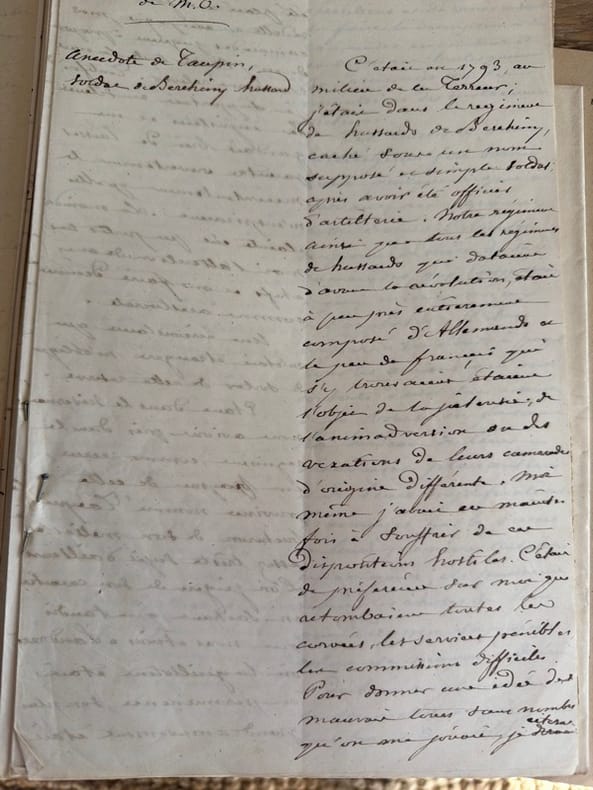 de M. O.
Anecdote de Taupin,
soldat de Bercheiny hussard
C'était en 1793, au
milieu de la Terreur;
j'étais dans le régiment
de hussards de Bercheiny,
caché sous un nom
supposé et simple soldat
après avoir été officier
d'artillerie. Notre régiment
ainsi que tous les régimens
de hussards qui dataient
d'avant la révolution, était
à peu près entièrement
composé d'Allemands et
le peu de français qui
s'y trouvaient, étaient
l'objet de la jalousie, de
l'animadversion ou des
vexations de leurs camarades
d'origine différente. Moi
même j'avais eu maintes
fois à souffrir de ces
dispositions hostiles. C'était
de préférence sur moi que
retombaient toutes les
corvées, les services pénibles
les commissions difficiles.
Pour donner une idée des
mauvais tours sans nombre
qu'on me jouait, je